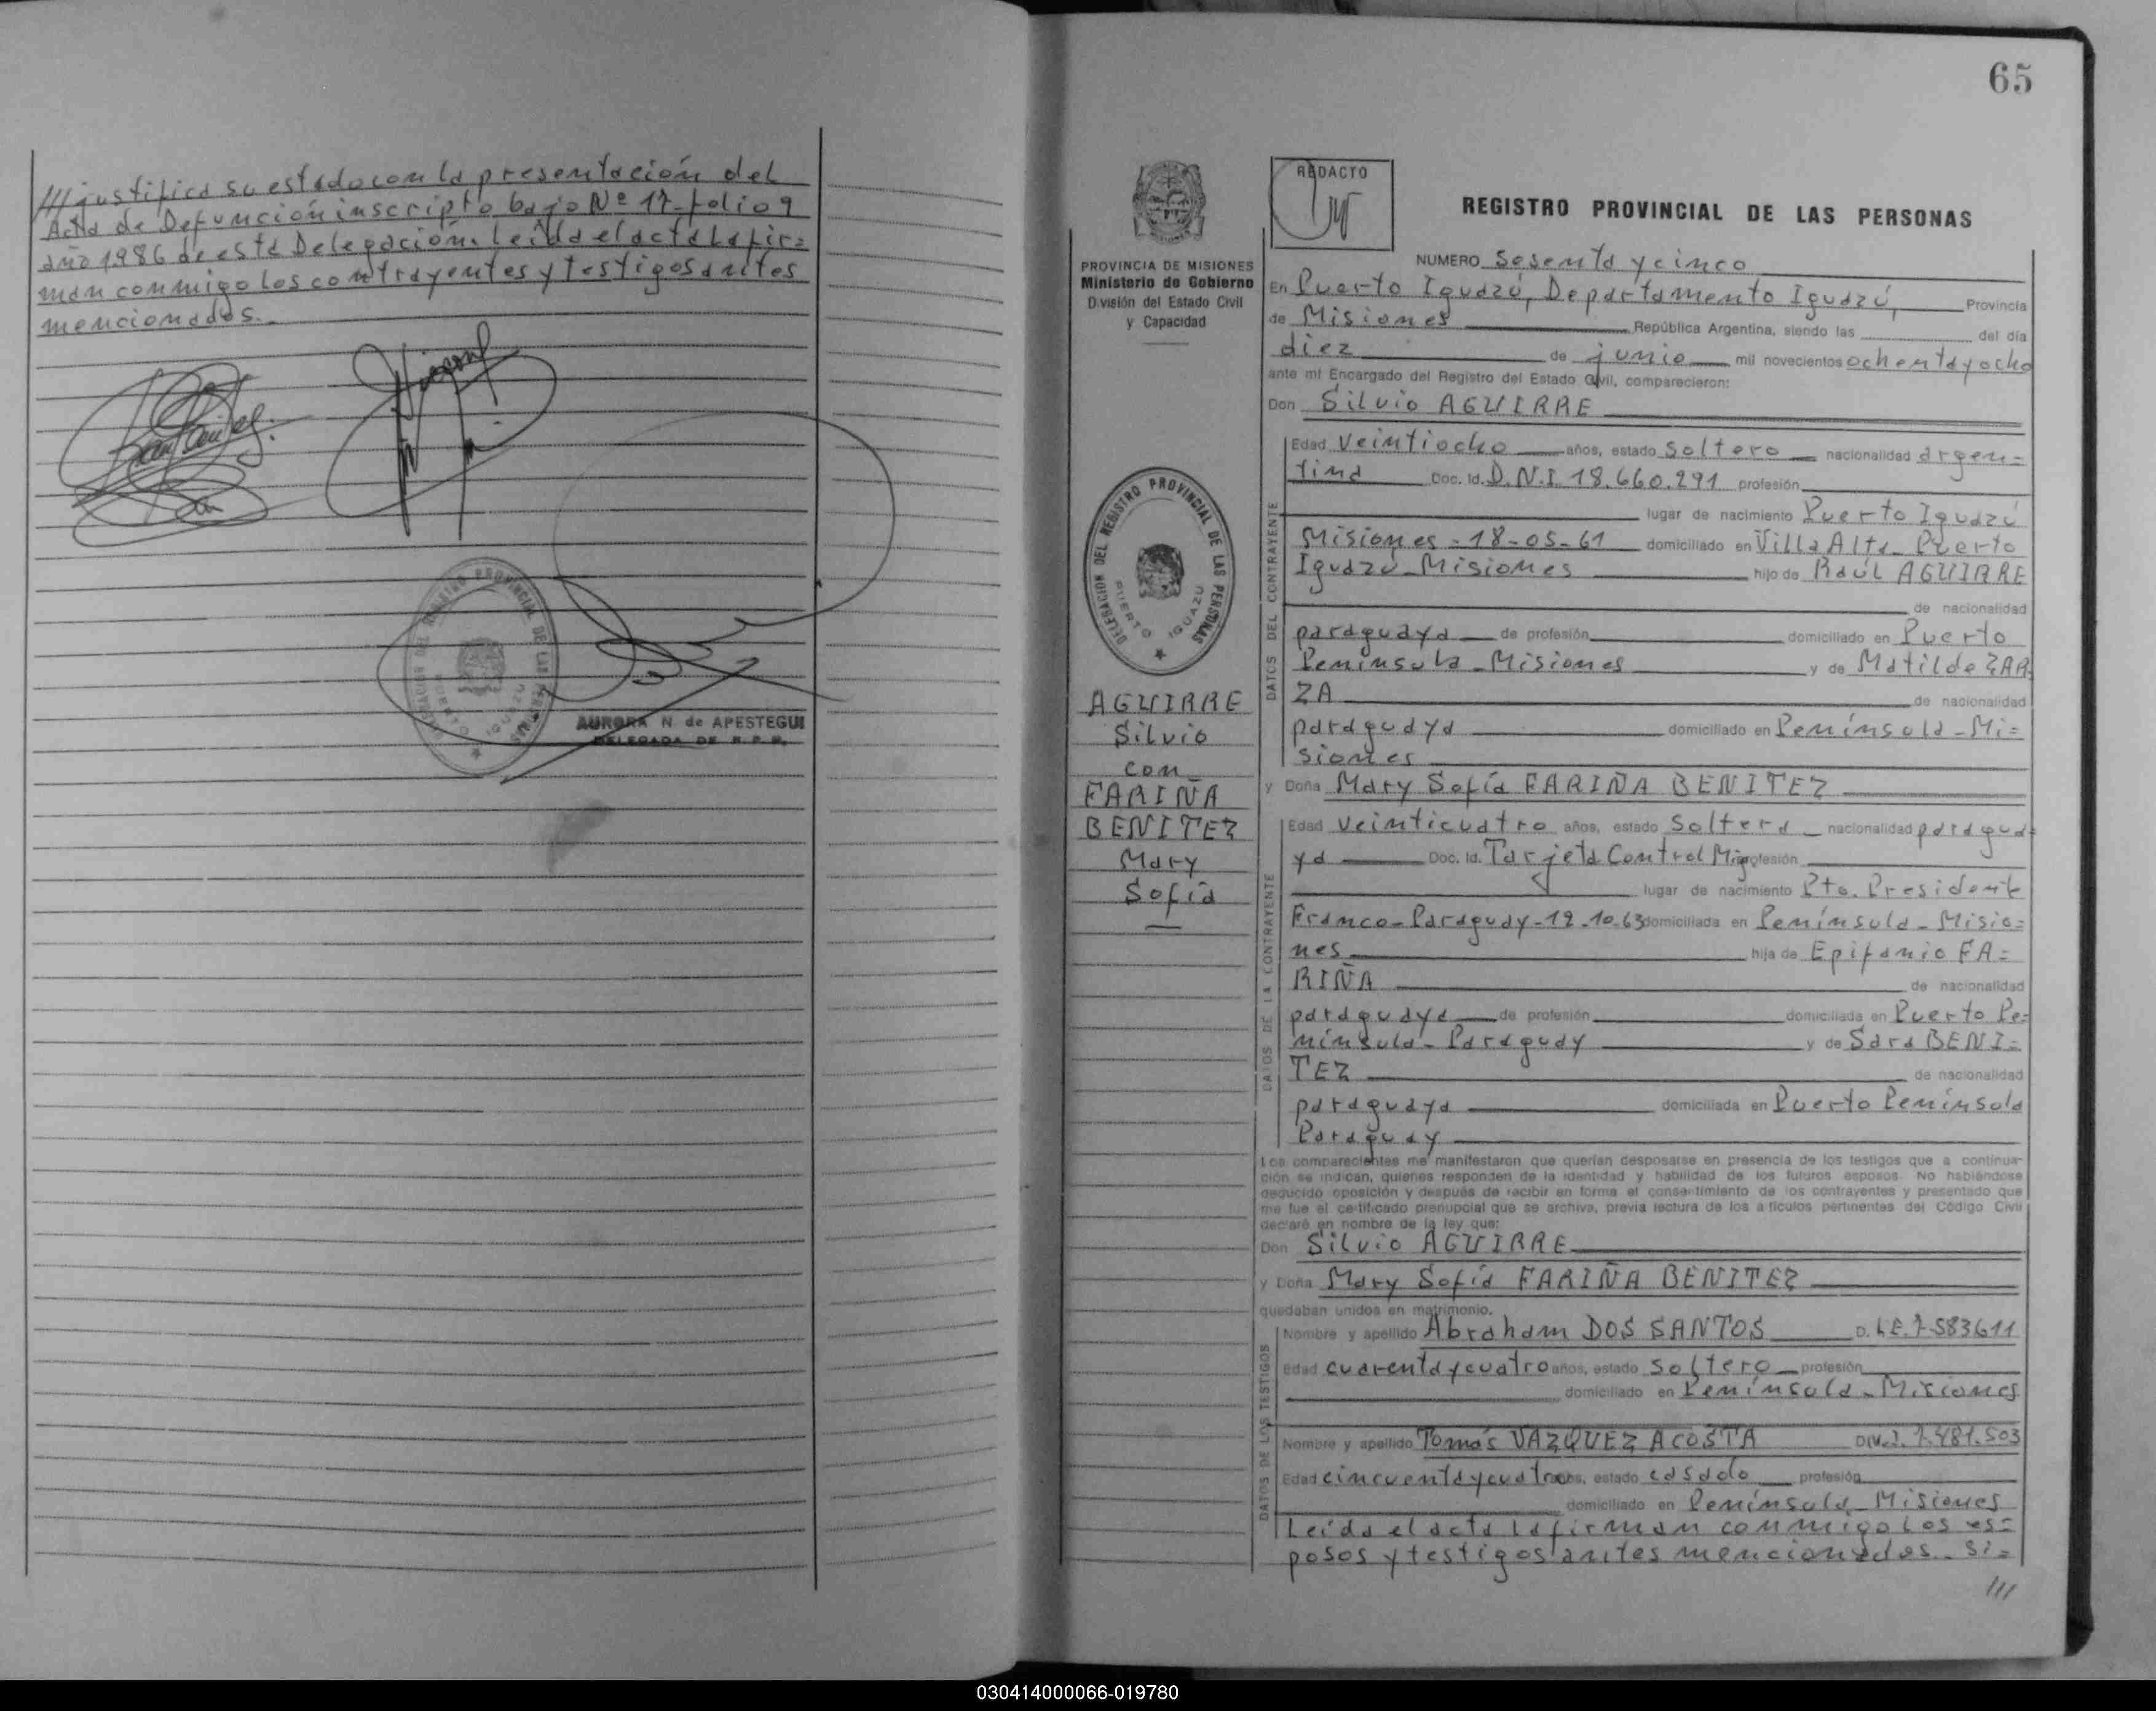 /// justifica su estado con la presentación del
Acta de Defunción inscripto bajo Nº 17 - folio 9
año 1986 de esta Delegación. Leída el acta la fir=
man conmigo los contrayentes y testigos antes
mencionados.
AURORA N. de APESTEGUI
DELEGADA DE R. P. P.
65
REDACTO
PROVINCIA DE MISIONES
Ministerio de Gobierno
División del Estado Civil
y Capacidad
DELEGACION DEL REGISTRO PROVINCIAL DE LAS PERSONAS
PUERTO IGUAZU
AGUIRRE
Silvio
con
FARIÑA
BENITEZ
Mary
Sofía
REGISTRO PROVINCIAL DE LAS PERSONAS
NUMERO Sesenta y cinco
En Puerto Iguazú, Departamento Iguazú, Provincia
de Misiones República Argentina, siendo las del día
diez de junio mil novecientos ochenta y ocho
ante mí Encargado del Registro del Estado Civil, comparecieron:
Don Silvio AGUIRRE
DATOS DEL CONTRAYENTE
Edad Veintiocho años, estado Soltero nacionalidad argen=
tina Doc. Id. D.N.I. 18.660.291 profesión
lugar de nacimiento Puerto Iguazú
Misiones - 18-05-61 domiciliado en Villa Alta - Puerto
Iguazú - Misiones hijo de Raúl AGUIRRE
de nacionalidad
paraguaya de profesión domiciliado en Puerto
Península - Misiones y de Matilde ZAR
ZA de nacionalidad
paraguaya domiciliado en Península - Mi=
siones
y Doña Mary Sofía FARIÑA BENITEZ
DATOS DE LA CONTRAYENTE
Edad Veinticuatro años, estado Soltera nacionalidad paragua=
ya Doc. Id. Tarjeta Control Mig profesión
lugar de nacimiento Pto. Presidente
Franco - Paraguay - 19-10-63 domiciliada en Península - Misio=
nes hija de Epifanio FA=
RIÑA de nacionalidad
paraguaya de profesión domiciliada en Puerto Pe=
nínsula - Paraguay y de Sara BENI=
TEZ de nacionalidad
paraguaya domiciliada en Puerto Península
Paraguay
Los comparecientes me manifestaron que querían desposarse en presencia de los testigos que a continua-
ción se indican, quienes responden de la identidad y habilidad de los futuros esposos. No habiéndose
deducido oposición y después de recibir en forma el consentimiento de los contrayentes y presentado que
me fue el certificado prenupcial que se archiva, previa lectura de los artículos pertinentes del Código Civil
declaré en nombre de la ley que:
Don Silvio AGUIRRE
y Doña Mary Sofía FARIÑA BENITEZ
quedaban unidos en matrimonio.
DATOS DE LOS TESTIGOS
Nombre y apellido Abraham DOS SANTOS D. L.E. 7.583611
Edad cuarenta y cuatro años, estado soltero profesión
domiciliado en Península - Misiones
Nombre y apellido Tomás VAZQUEZ ACOSTA D.N.I. 7.481.503
Edad cincuenta y cuatro años, estado casado profesión
domiciliado en Península - Misiones
Leída el acta la firman conmigo los es=
posos y testigos antes mencionados. Si=
///
030414000066-019780